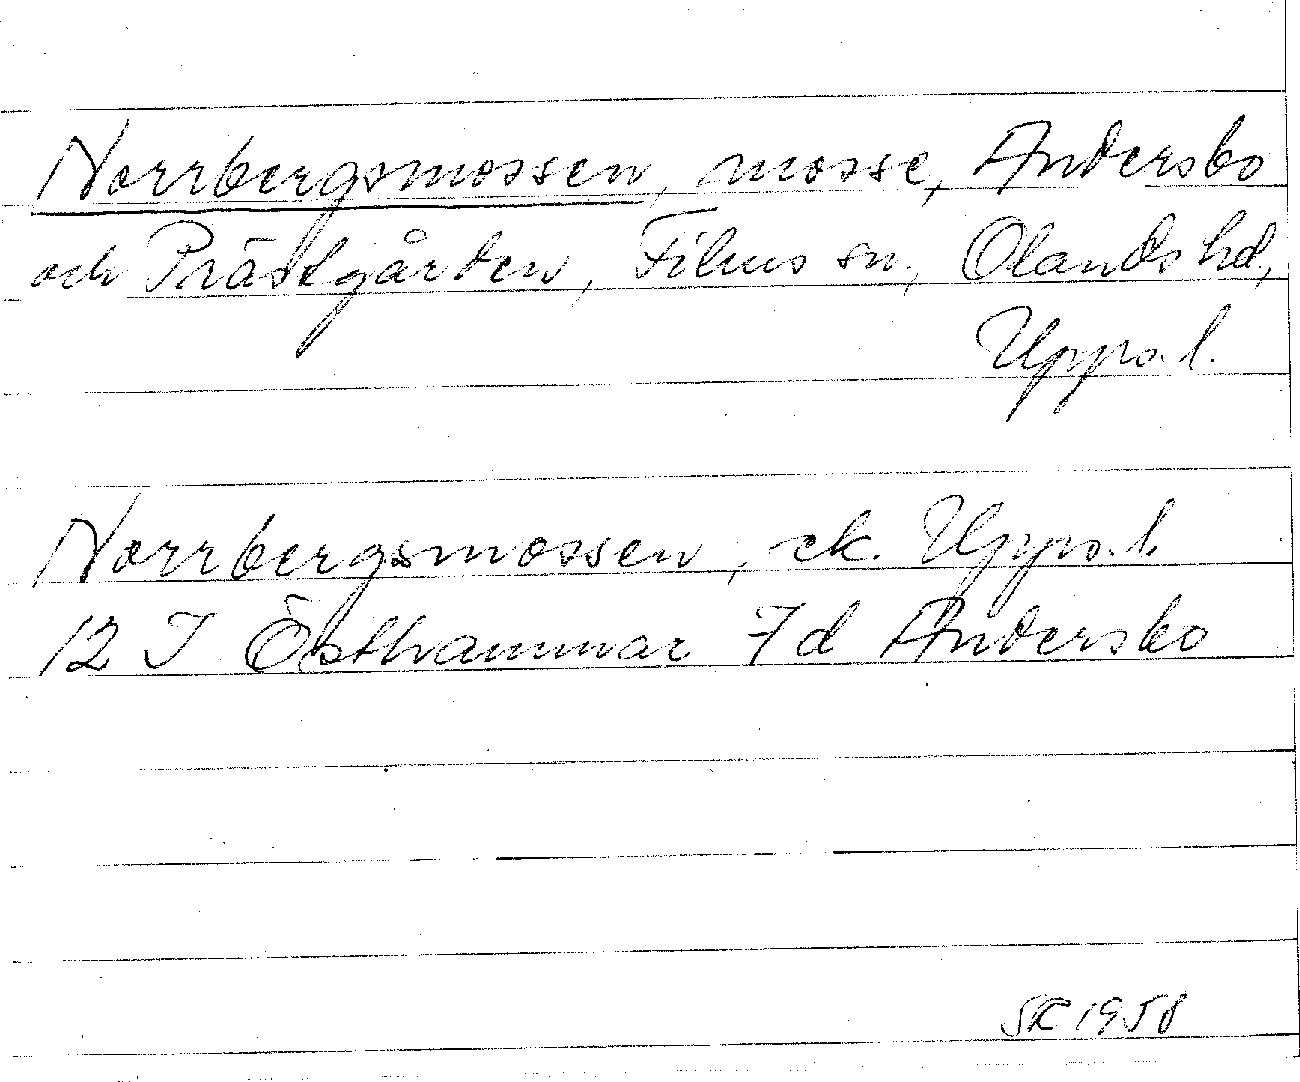 Norrbergsmossen, mosse, Andersbo
och Prästgården, Films sn, Olands hd,
Upps. l.
Norrbergsmossen, ek. Upps. l.
12 I Östhammar 7d Andersbo
SK 1958